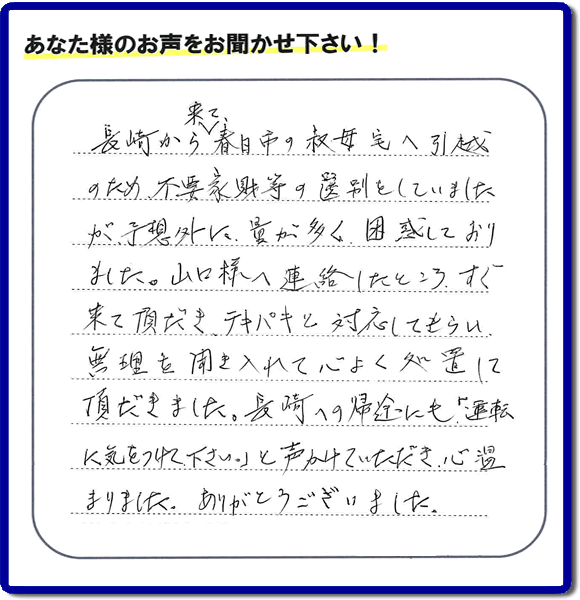 あなた様のお声をお聞かせ下さい！
来て、
長崎から春日市の叔母宅へ引越
のため、不要家財等の選別をしていました
が、予想外に、量が多く、困惑しており
ました。山口様へ連絡したところ、すぐ
来て頂だき、テキパキと対応してもらい、
無理を聞き入れて心よく処置して
頂だきました。長崎への帰途にも「運転
に気をつけて下さい。」と声かけていただき、心温
まりました。ありがとうございました。